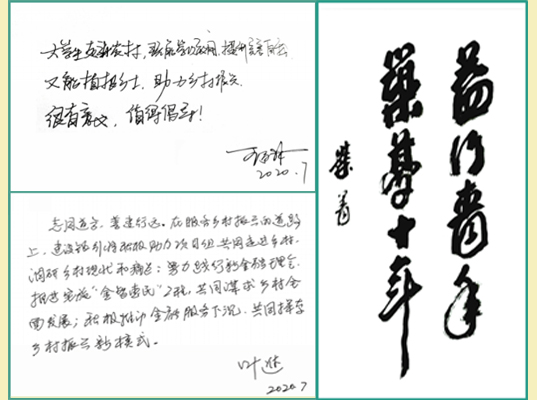 大学生走进农村，
又能植根乡土，助力乡村振兴
很有意义，值得倡导！
2020.7
志同道合，善建行远。在服务乡村振兴的道路
上，建设银行将积极助力项目组共同走进乡村，
调研乡村现状和痛点；努力践行新金融理念，
推进实施“金智惠民”工程，共同谋求乡村全
面发展；积极推动金融服务下沉，共同探索
乡村振兴新模式。
叶
2020.7
益行
筑梦十年